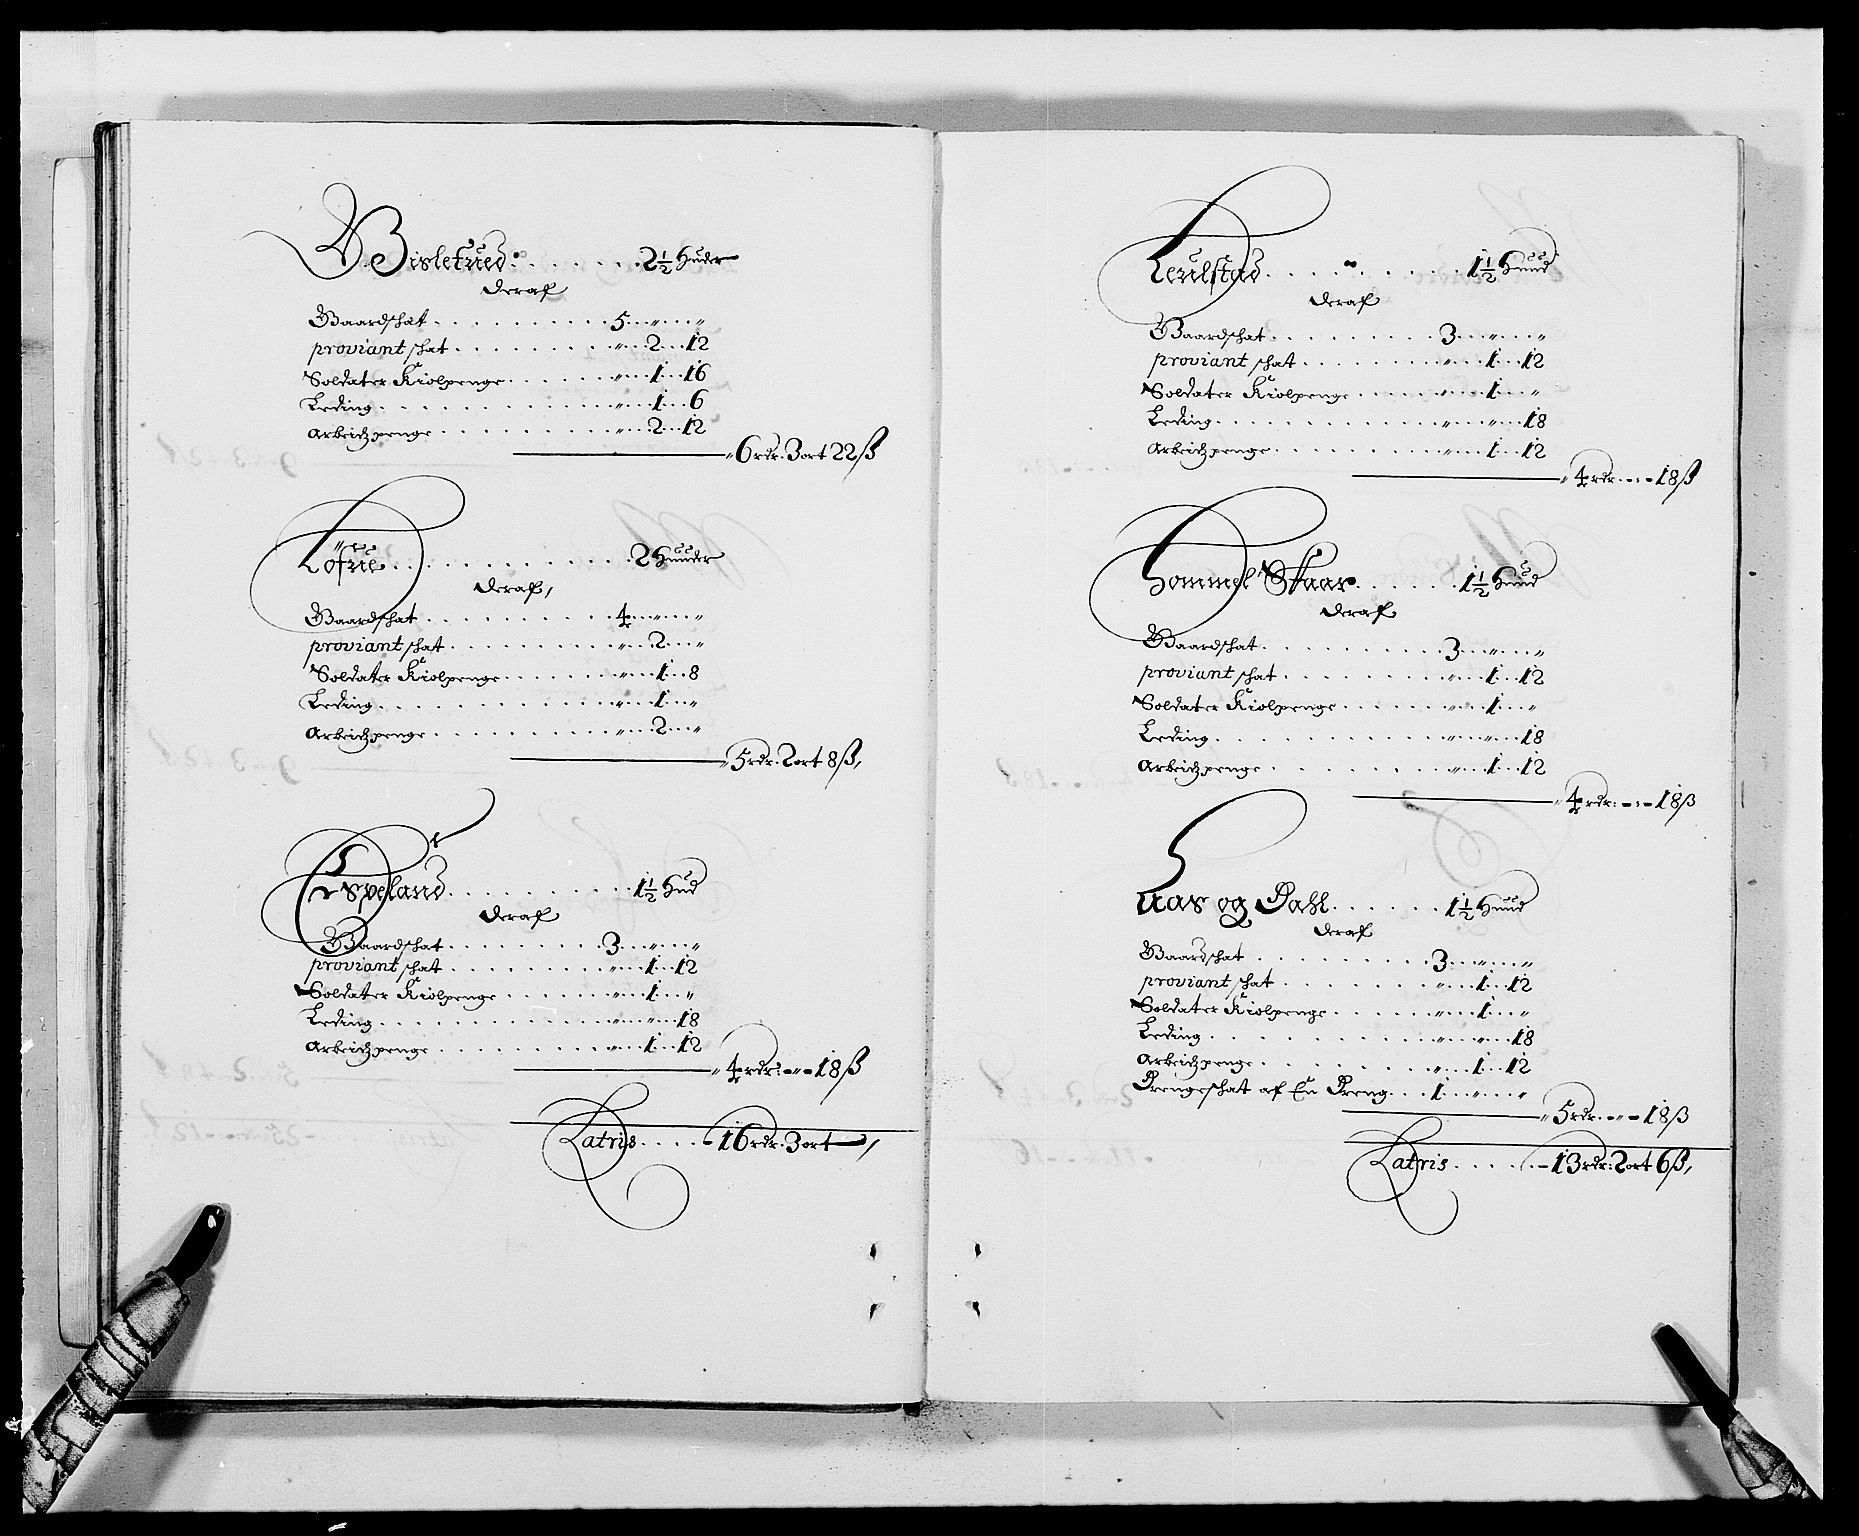 Gislefued: . . . . . . . 2 1/2 Huder
deraf
Gaardschat . . . . . . . . . 5 " "
proviant schat . . . . . . . . " 2 12
Soldater Kiolpenge . . . . . . " 1 16
Leding . . . . . . . . . . . " 1 6
Arbeidzpenge . . . . . . . . . " 2 12
6 rdr. 3 ort 22 ß
. . . . . . . . . . . . 2 Huuder
deraf,
Gaardschat . . . . . . . . . 4 " "
proviant schat . . . . . . . . " 2 "
Soldater Kiolpenge . . . . . . " 1 8
Leding . . . . . . . . . . . " 1 "
Arbeidzpenge . . . . . . . . . " 2 "
5 rdr. 2 ort 8 ß,
Espeland . . . . . . . . . 1 1/2 Hud
deraf
Gaardschat . . . . . . . . . 3 " "
proviant schat . . . . . . . . " 1 12
Soldater Kiolpenge . . . . . . " 1 "
Leding . . . . . . . . . . . " " 18
Arbeidzpenge . . . . . . . . . " 1 12
4 rdr: - " - 18 ß
Latris . . . . - 16 rdr. 3 ort —,
Leulstad . . . . . . . . . 1 1/2 Huud
deraf
Gaardschat . . . . . . . . . 3 " "
proviant schat . . . . . . . . " 1 12
Soldater Kiolpenge . . . . . . " 1 "
Leding . . . . . . . . . . . " " 18
Arbeidzpenge . . . . . . . . . " 1 12
4 rdr. - : - 18 ß
Hommel Skaar . . . . . . 1 1/2 Huud
deraf
Gaardschat . . . . . . . . . 3 " "
proviant schat . . . . . . . . " 1 12
Soldater Kiolpenge . . . . . . " 1 "
Leding . . . . . . . . . . . " " 18
Arbeidzpenge . . . . . . . . . " 1 12
4 rdr: - : - 18 ß
Aas og Dahl . . . . . . 1 1/2 Huud
deraf
Gaardschat . . . . . . . . . 3 " "
proviant schat . . . . . . . . " 1 12
Soldater Kiolpenge . . . . . . " 1 "
Leding . . . . . . . . . . . " " 18
Arbeidzpenge . . . . . . . . . " 1 12
Drengeschat af En Dreng . . . 1 " "
5 rdr. - " - 18 ß
Latris . . . . . - 13 rdr: 2 ort 6 ß,